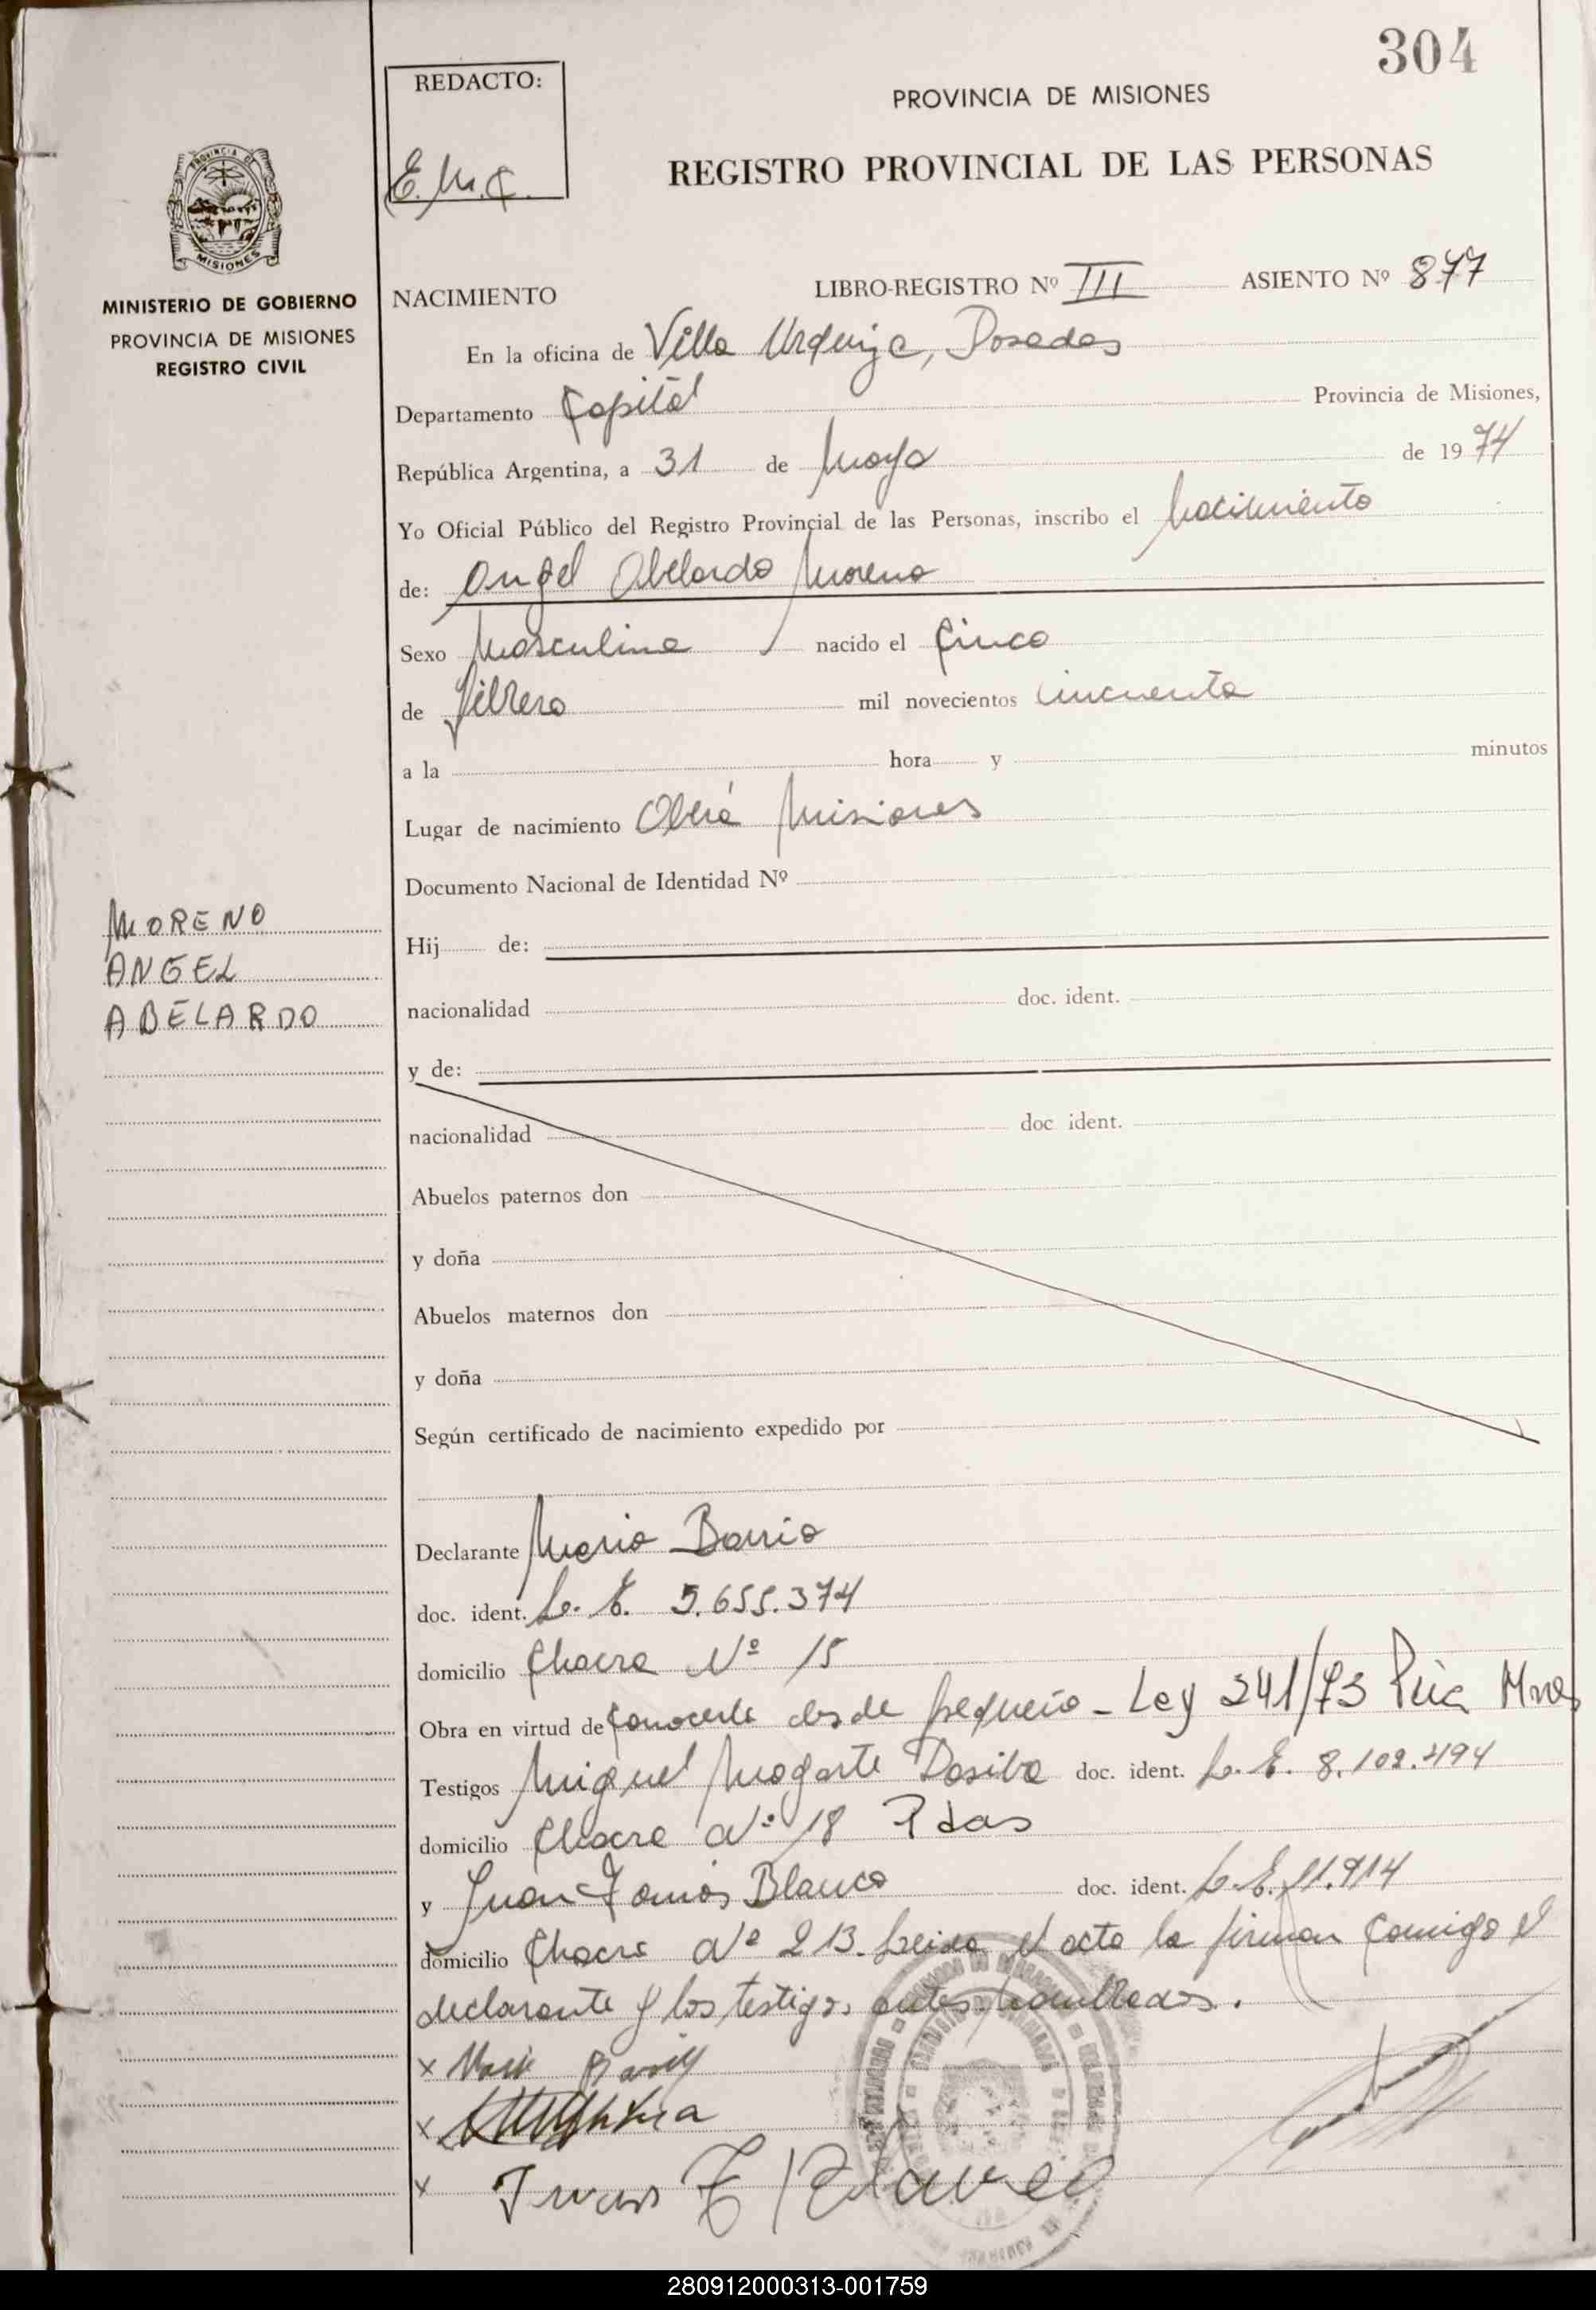 304
REDACTO:
E.M.C.
PROVINCIA DE MISIONES
REGISTRO PROVINCIAL DE LAS PERSONAS
PROVINCIA DE
MISIONES
MINISTERIO DE GOBIERNO
PROVINCIA DE MISIONES
REGISTRO CIVIL
NACIMIENTO LIBRO-REGISTRO Nº III ASIENTO Nº 877
En la oficina de Villa Urquiza, Posadas
Departamento Capital Provincia de Misiones,
República Argentina, a 31 de Mayo de 1974
Yo Oficial Público del Registro Provincial de las Personas, inscribo el Nacimiento
de: Angel Abelardo Moreno
Sexo Masculino nacido el Cinco
de Febrero mil novecientos cincuenta
a la hora y minutos
Lugar de nacimiento Oberá Misiones
Documento Nacional de Identidad Nº
MORENO
ANGEL
ABELARDO
Hij de:
nacionalidad doc. ident.
y de:
nacionalidad doc ident.
Abuelos paternos don
y doña
Abuelos maternos don
y doña
Según certificado de nacimiento expedido por
Declarante Mario Barrio
doc. ident. L. E. 5.655.374
domicilio Chacra Nº 15
Obra en virtud de conocerle desde pequeño - Ley 241/73 Pcia Mnes
Testigos Miguel Dasilva doc. ident. L. E. 8.102.494
domicilio Chacra Nº 18 Pdas
y Juan Tomás Blanco doc. ident. L. E. 11.914
domicilio Chacra Nº 213. Leida el acta la firman comigo el
declarante y los testigos antes nombrados.
x
x
x Juan T Blanco
280912000313-001759